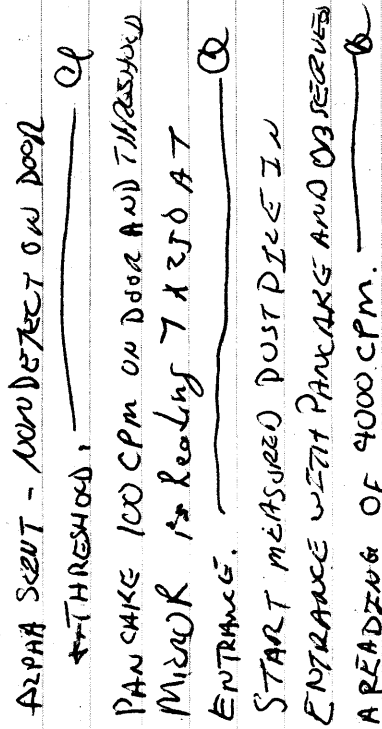 ALPHA SCINT - NON DETECT ON DOOR
THRESHOLD.
PANCAKE 100 CPM ON DOOR AND THRESHOLD
MicroR is Reading 7 X 250 AT
ENTRANCE.
START MEASURED DUST PILE IN
ENTRANCE WITH PANCAKE AND OBSERVED
A READING OF 4000 CPM.